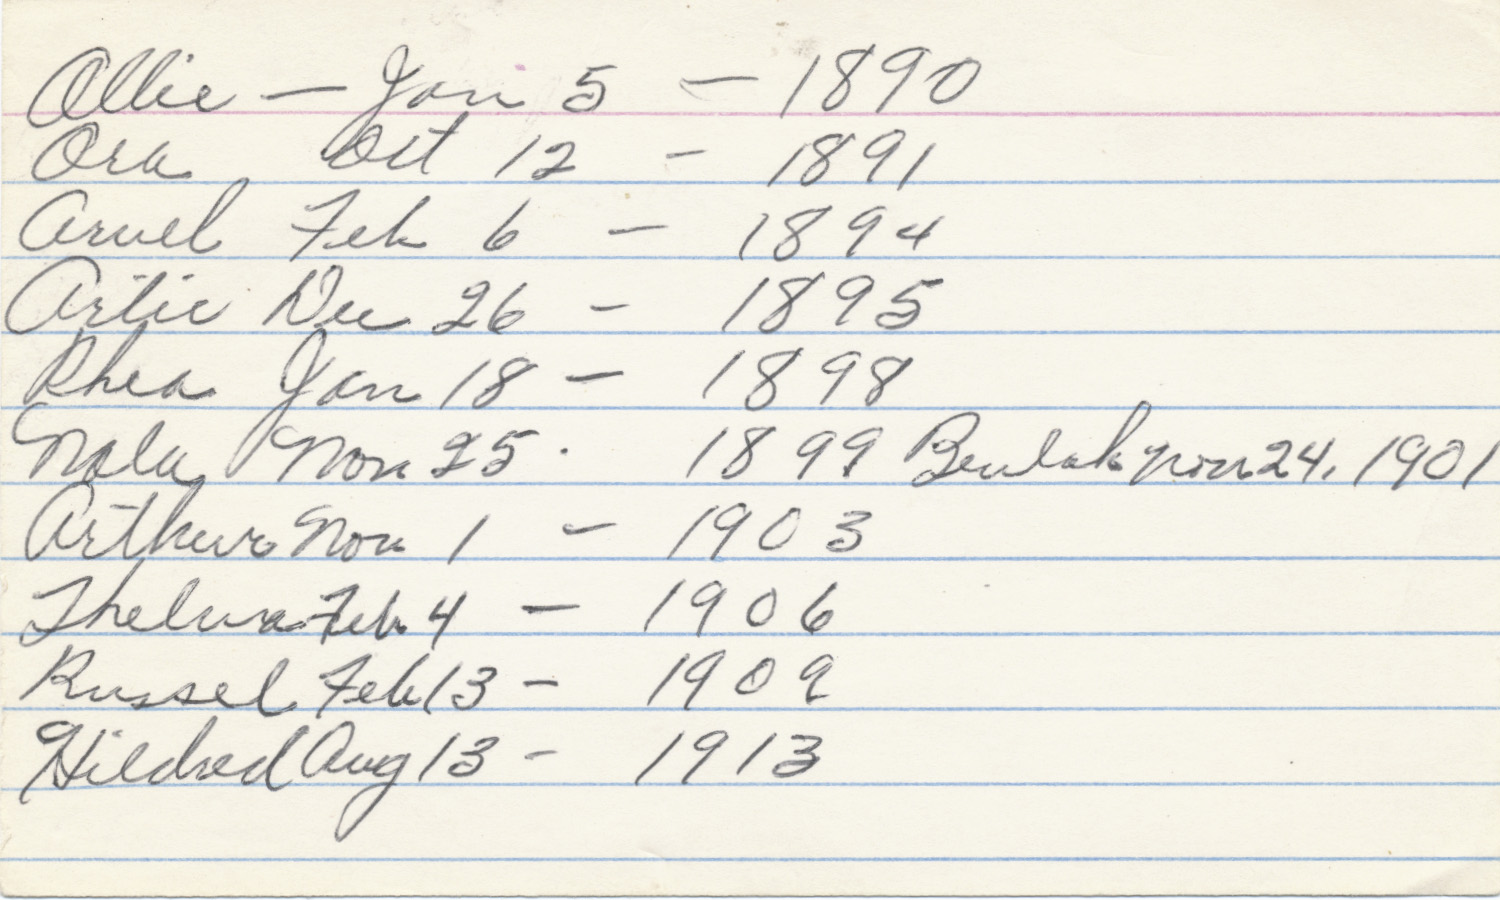 Allie — Jan 5 — 1890
Ora Oct 12 - 1891
Arvel Feb 6 - 1894
Artie Dec 26 - 1895
Rhea Jan 18 - 1898
Nola Nov 25. 1899 Beulah Nov 24, 1901
Arthur Nov 1 - 1903
Thelma Feb 4 - 1906
Russel Feb 13 - 1909
Hildred Aug 13 - 1913